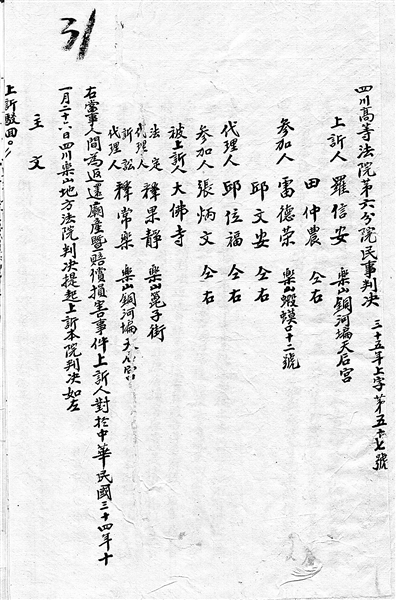 31
四川高等法院第六分院民事判决
三十五年上字第五十七號
上訴人 羅信安 樂山銅河塥天后宮
田仲農 仝右
參加人 雷德荣 樂山蝦蟆口十二號
邱文安 仝右
代理人 邱位福 仝右
參加人 張炳文 仝右
被上訴人 大佛寺
法定代理人 釋果靜 樂山兎子街
訴訟代理人 釋常樂 樂山銅河塥天后宮
右當事人間為返還廟產暨賠償損害事件上訴人對於中華民國三十四年十
一月二十六日四川樂山地方法院判决提起上訴本院判决如左
主文
上訴駁回。